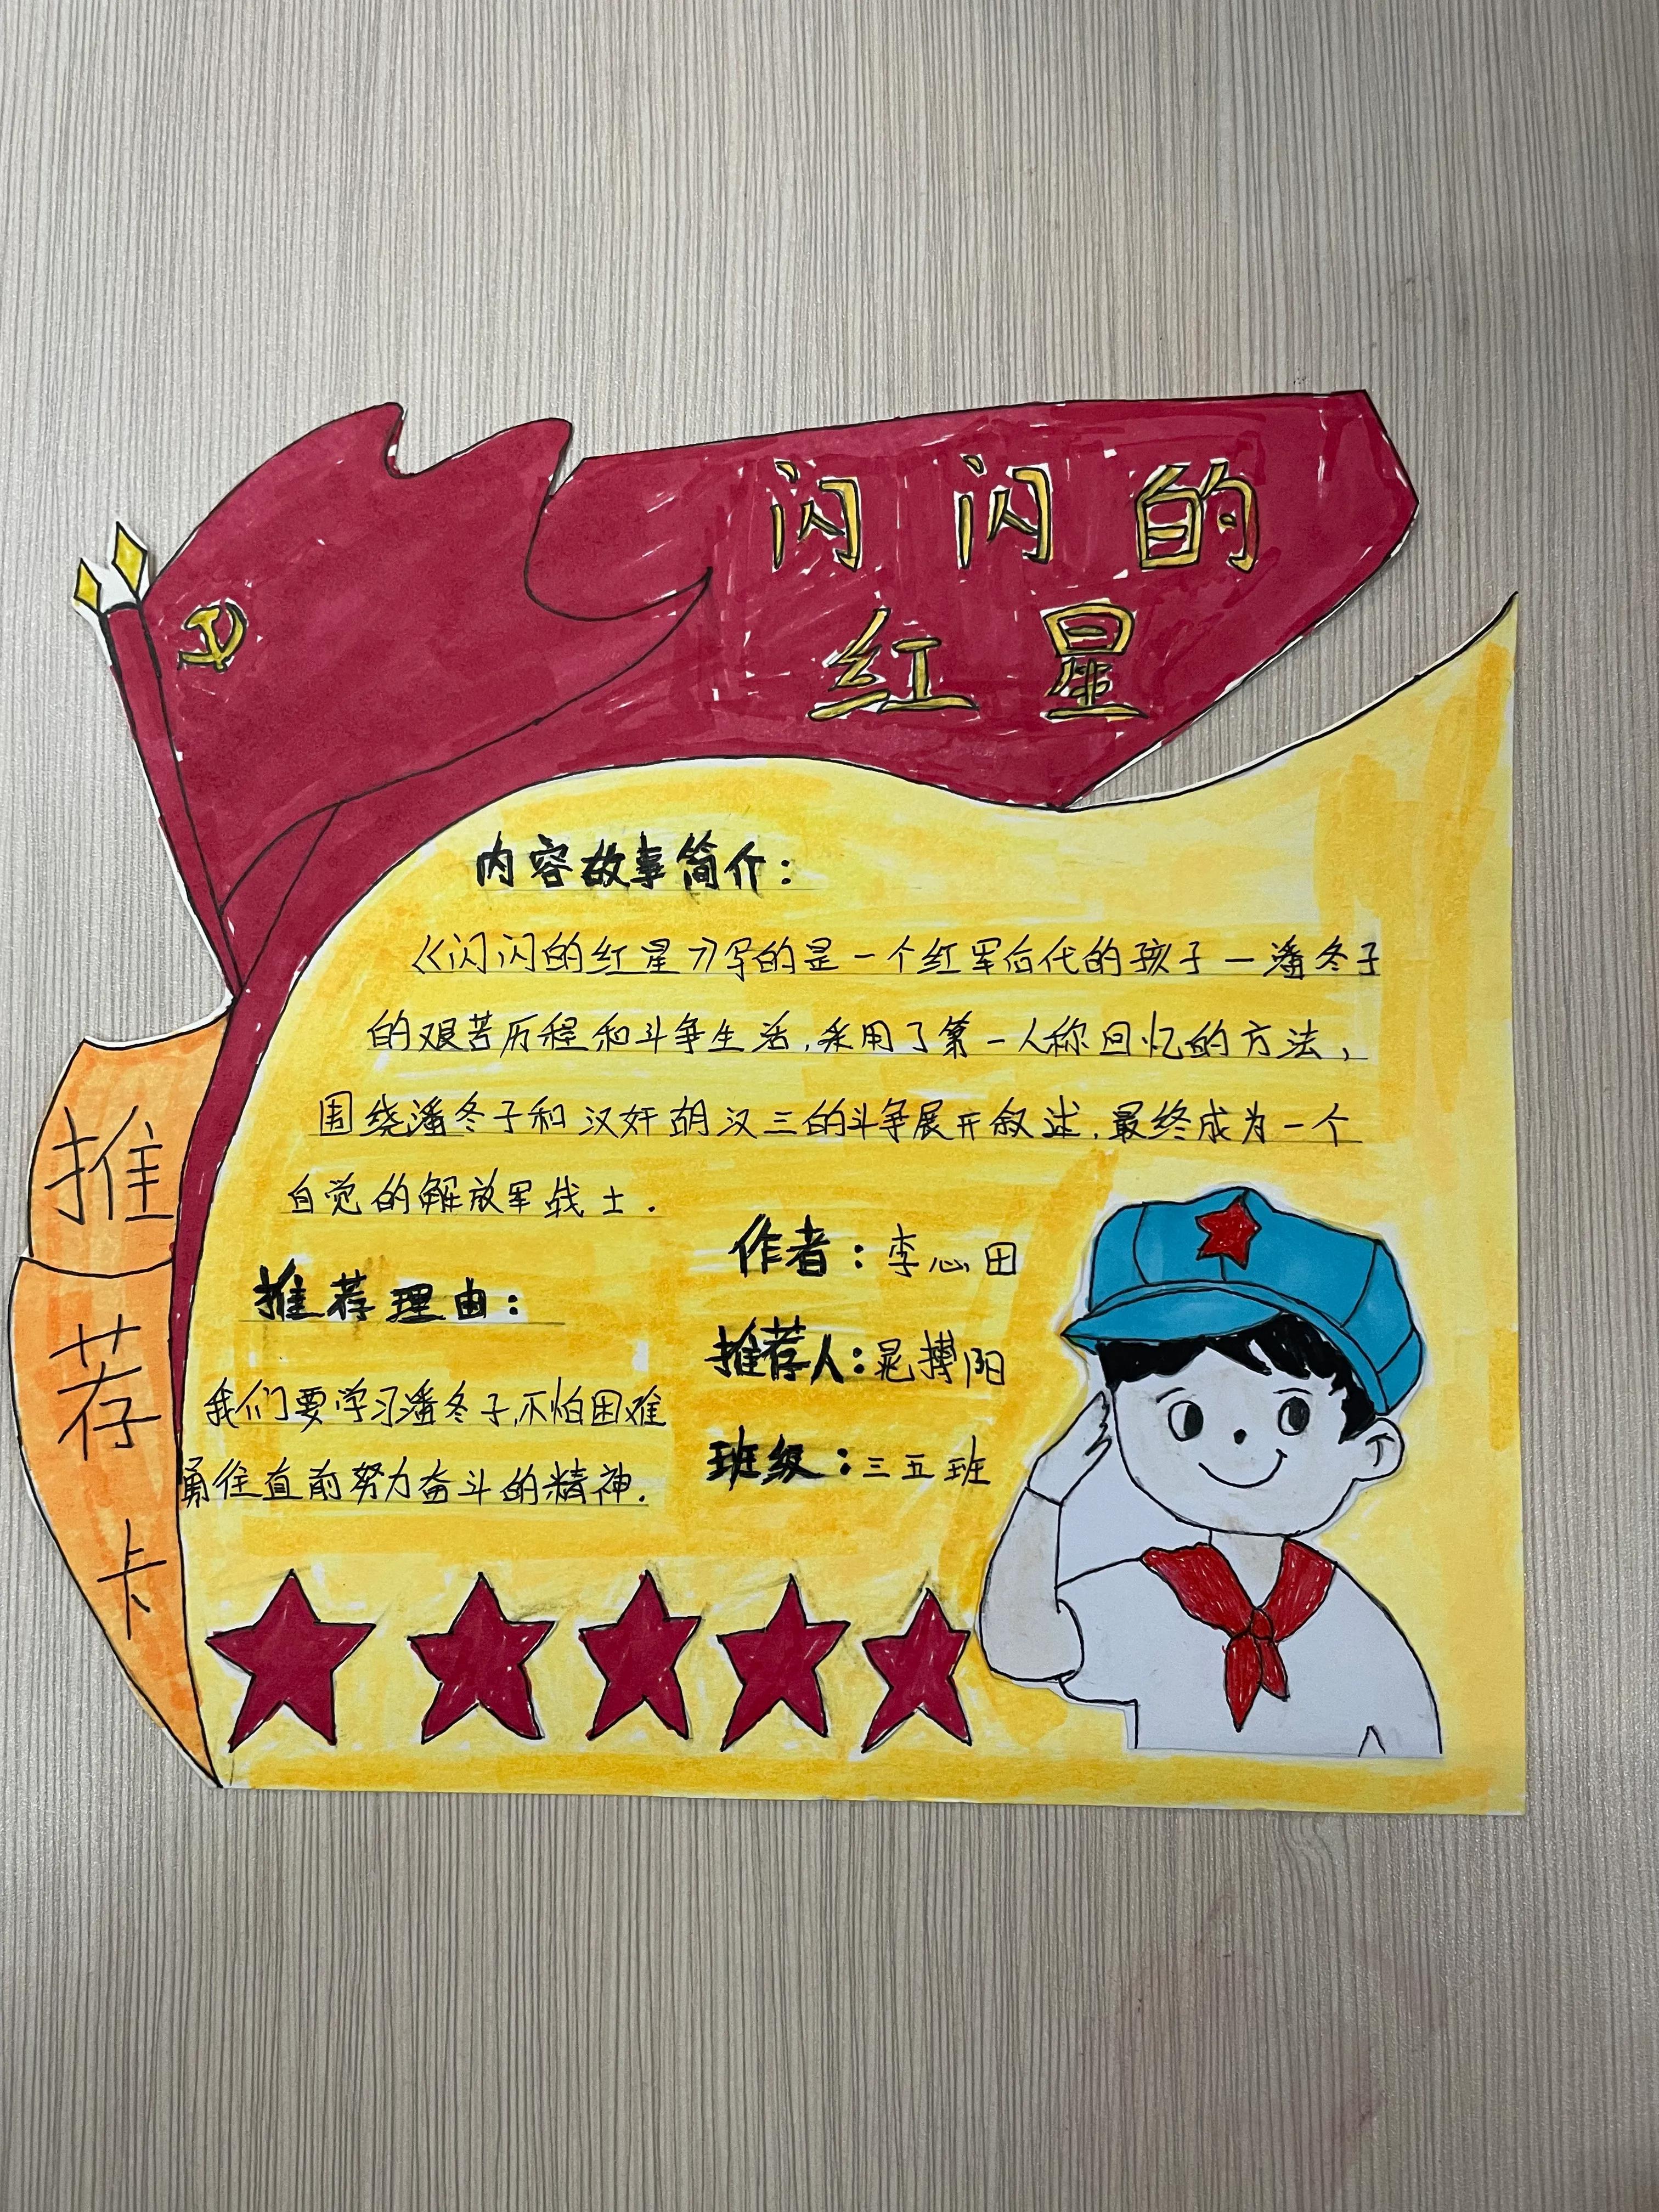 闪闪的
红星
推荐卡
内容故事简介：
《闪闪的红星》写的是一个红军后代的孩子—潘冬子
的艰苦历程和斗争生活，采用了第一人称回忆的方法，
围绕潘冬子和汉奸胡汉三的斗争展开叙述，最终成为一个
自觉的解放军战士.
作者：李心田
推荐理由：
推荐人：晁搏阳
我们要学习潘冬子，不怕困难
班级：三五班
勇往直前努力奋斗的精神.